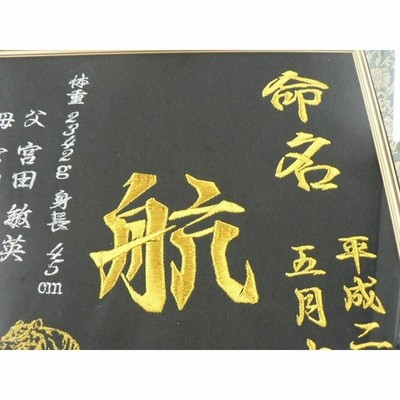 命名
平成二
五月
航
体重2342g 身長45cm
父 宮田 敏英
母